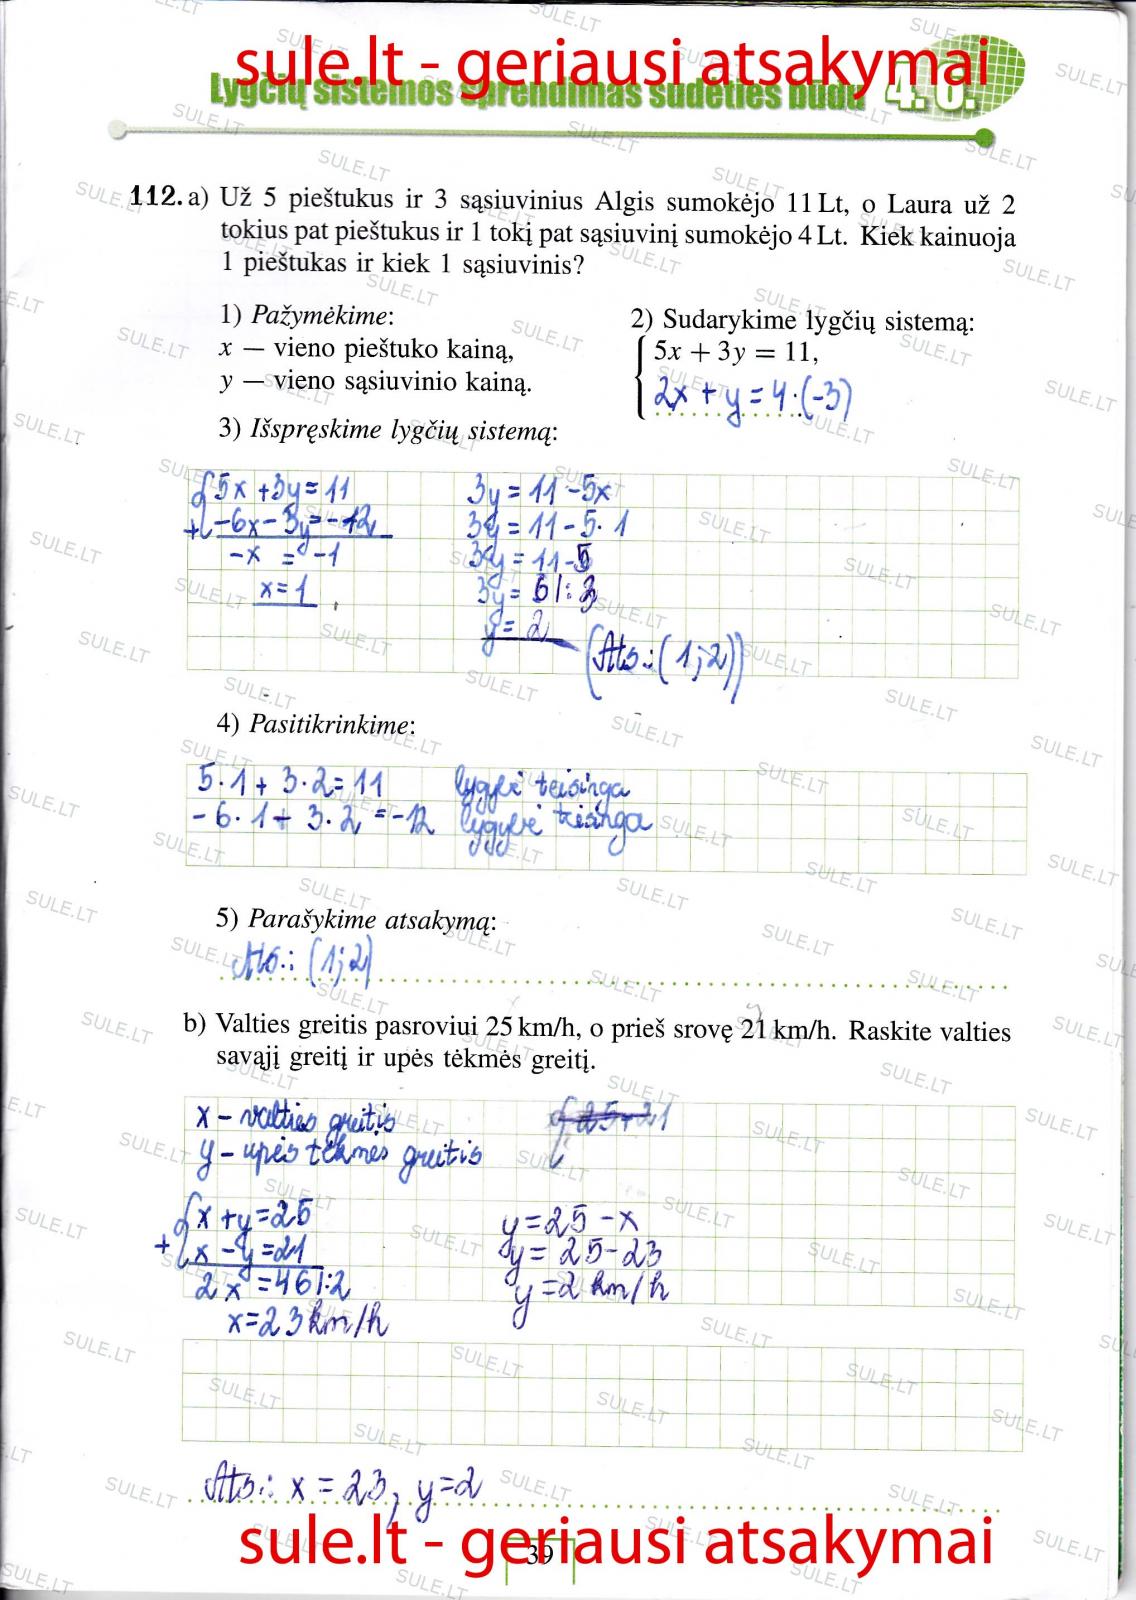 sule.lt - geriausi atsakymai
Lygčių sistemos sprendimas sudėties būdu 4.6.
112. a) Už 5 pieštukus ir 3 sąsiuvinius Algis sumokėjo 11 Lt, o Laura už 2
tokius pat pieštukus ir 1 tokį pat sąsiuvinį sumokėjo 4 Lt. Kiek kainuoja
1 pieštukas ir kiek 1 sąsiuvinis?
1) Pažymėkime:
x — vieno pieštuko kainą,
y — vieno sąsiuvinio kainą.
2) Sudarykime lygčių sistemą:
5x + 3y = 11,
2x + y = 4 · (-3)
3) Išspręskime lygčių sistemą:
5x + 3y = 11
+ -6x - 3y = -12
-x = -1
x = 1
3y = 11 - 5x
3y = 11 - 5 · 1
3y = 11 - 5
3y = 6 |: 3
y = 2
(Ats.: (1; 2))
4) Pasitikrinkime:
5 · 1 + 3 · 2 = 11 lygybė teisinga
- 6 · 1 + 3 · 2 = -12 lygybė teisinga
5) Parašykime atsakymą:
Ats.: (1; 2)
b) Valties greitis pasroviui 25 km/h, o prieš srovę 21 km/h. Raskite valties
savąjį greitį ir upės tėkmės greitį.
x - valties greitis
y - upės tėkmės greitis
25+21
x + y = 25
+ x - y = 21
2x = 46 |: 2
x = 23 km/h
y = 25 - x
y = 25 - 23
y = 2 km/h
Ats.: x = 23, y = 2
sule.lt - geriausi atsakymai
39